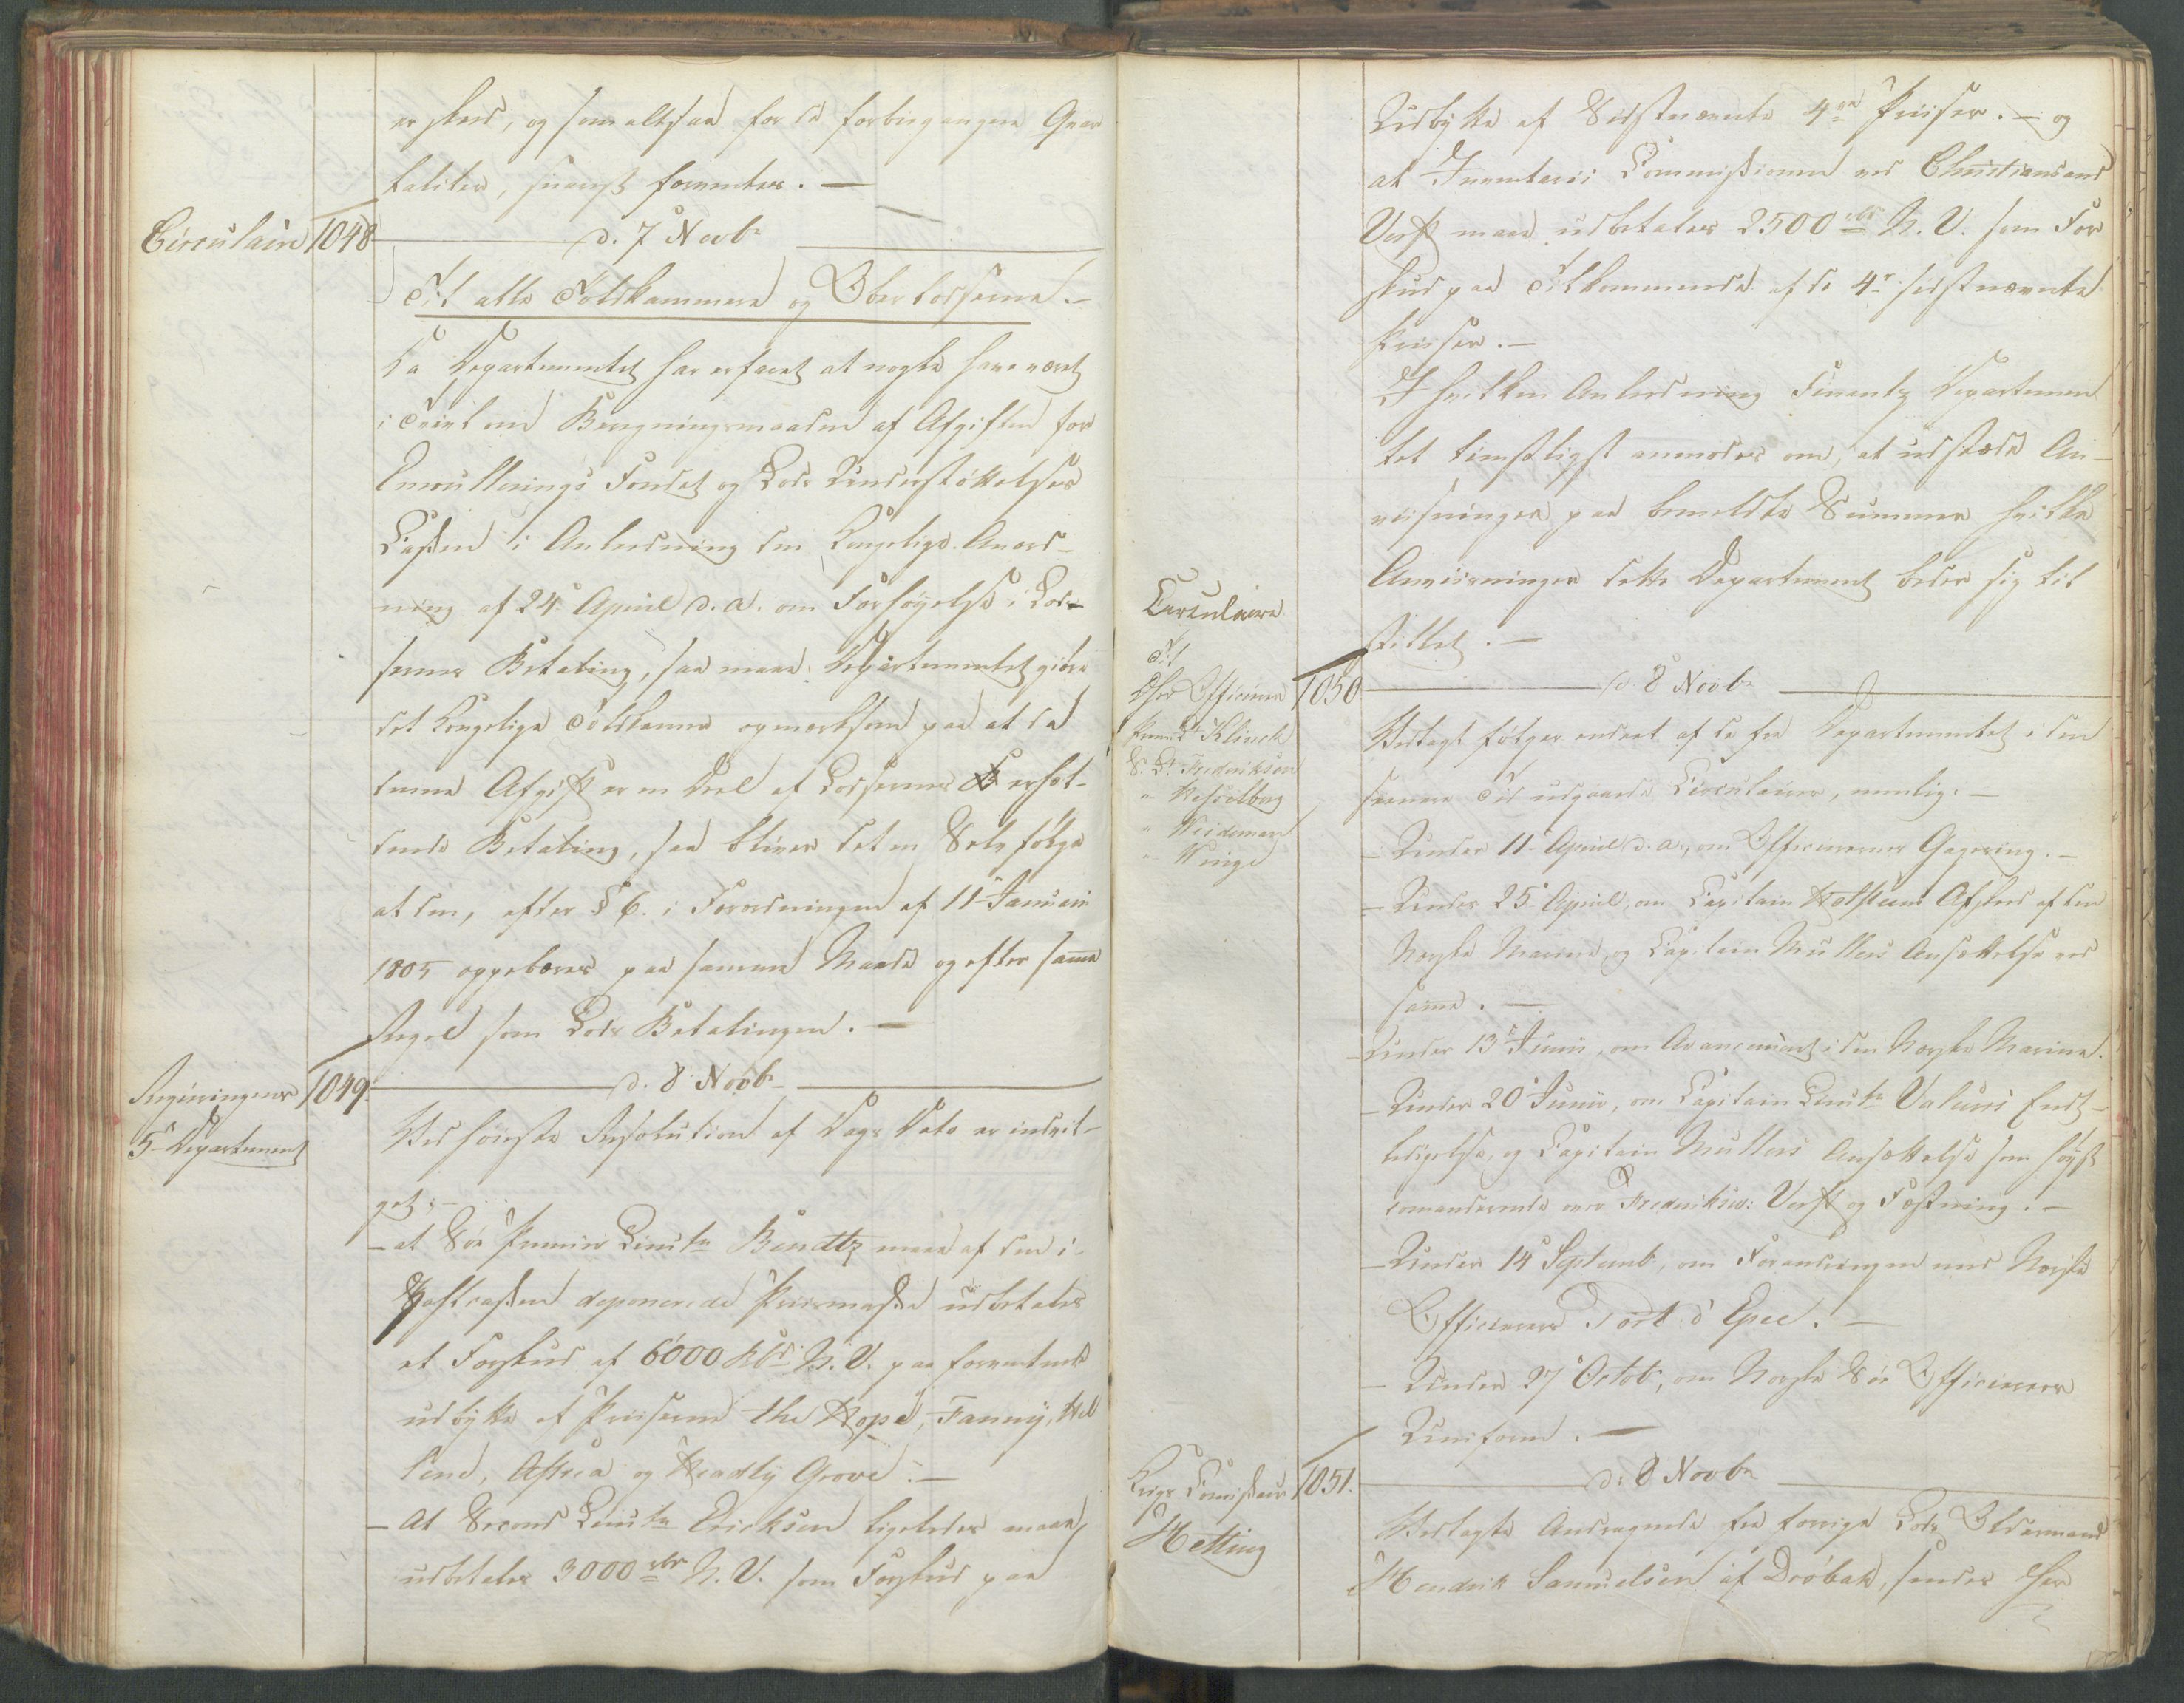 er skeed, og som altsaa for de forbiegangne Qvar
taliter, snarest forventes. —
Circulaire 1048 d. 7 Novbr
Til alle Toldkammere og Overlodserne. —
Da Departementet har erfaret at nogle have været
i Tvivl om Beregningsmaaden af Afgiften for
Enroullerings Fondet og Lods Understøttelses
Cassen i Anledning den Kongelige Anord-
ning af 24 April d. a. om Forhøyelse i Lod-
sernes Betaling, saa maae Departementet giøre
det Kongelige Toldkammer opmærksom paa at da
denne Afgift er en Deel af Lodsernes erhol-
dende Betaling, saa bliver det en Selvfølge
at den, efter § 6. i Forordningen af 11 Januari
1805 oppebæres paa samme Maade og efter samme
Regel som Lods Betalingen. —
Regieringens 1049 d. 8 Novbr
5te Departement
Ved høieste Resolution af Dags Dato er indvil-
get: —
— at Søe Premier Lieutn Bendtz maae af den i
Postcassen deponerede Priismasse udbetales
et Forskud af 6000 Rbd N.V. paa forventende
udbytte af Priserne the Hope, Fanny, Hel
lene, Astrea og Headly Grove. —
— At Second Lieutn Ericksen ligeledes maae
udbetales 3000 rbr N.V. som Forskud paa
Udbytte af Sidstnævnte 4re Priiser. — og
at Inventarii Commissionen ved Christiansands
Verft maae udbetales 2500 rbr N.V. som For
skud paa Tilkommende af de 4r sidstnævnte
Priiser. —
I hvilken Anledning Finantz Departemen
tet tienstligst anmodes om, at udstæde An-
viisninger paa bemeldte Summer hvilke
Anviisninger dette Departement beder sig til
stillet. —
Circulaire
Til
Chef Officerer 1050 d. 8 Novbr
Prem: Lt Klinck
S. Lt Frederiksen
" Hesselberg
" Weidemann
" Winge
Vedlagt følger endeel af de fra Departementet i den
seenere Tid udgaaede Circulairer, nemlig: —
— Under 11 April d. a., om Officerernes Gagering. —
— Under 25 April, om Capitain Holsteins Afskeed af den
Norske Marine, og Capitain Müllers Ansættelse ved
samme. —
— Under 13 Junii, om Avancement i den Norske Marine.
— Under 20 Junii, om Capitain Lieutn Valeurs Endt-
ledigelse, og Capitain Müllers Ansættelse som høyst
comanderende over Frederiksv: Verft og Fæstning. —
— Under 14 Septemb, om Forandringen med Norske
Officerers Port d'Epee. —
— Under 27 Octob, om Norske Søe Officierers
Uniform. —
Krigs Comissair 1051. d: 8 Novbr
Hetting
Vedlagte Andragende fra forrige Lods Oldermand
Hendrik Samuelsen af Drøbak, sendes Her